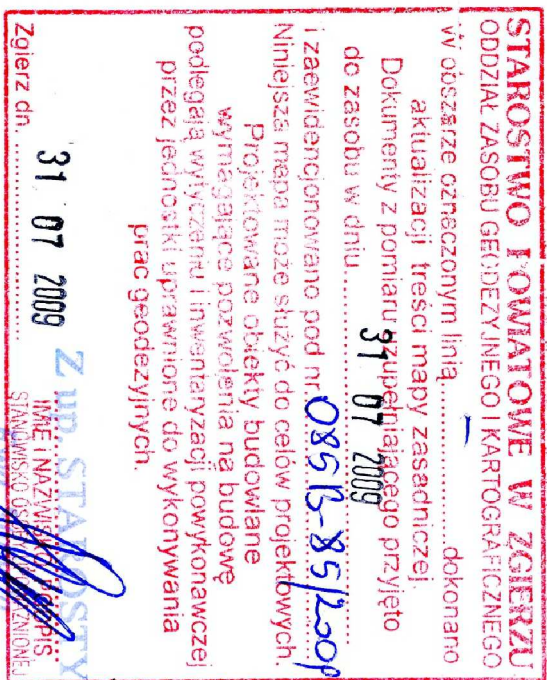 STAROSTWO POWIATOWE W ZGIERZU
ODDZIAŁ ZASOBU GEODEZYJNEGO I KARTOGRAFICZNEGO
W obszarze oznaczonym linią ..... – ..... dokonano
aktualizacji treści mapy zasadniczej.
Dokumenty z pomiaru uzupełniającego przyjęto
do zasobu w dniu ..... 31 07 2009
i zaewidencjonowano pod nr 0851B-85/2009
Niniejsza mapa może służyć do celów projektowych.
Projektowane obiekty budowlane
wymagające pozwolenia na budowę
podlegają wytyczeniu i inwentaryzacji powykonawczej
przez jednostki uprawnione do wykonywania
prac geodezyjnych.
Zgierz dn. 31 07 2009
Z up. STAROSTY
IMIĘ I NAZWISKO, PODPIS
STANOWISKO